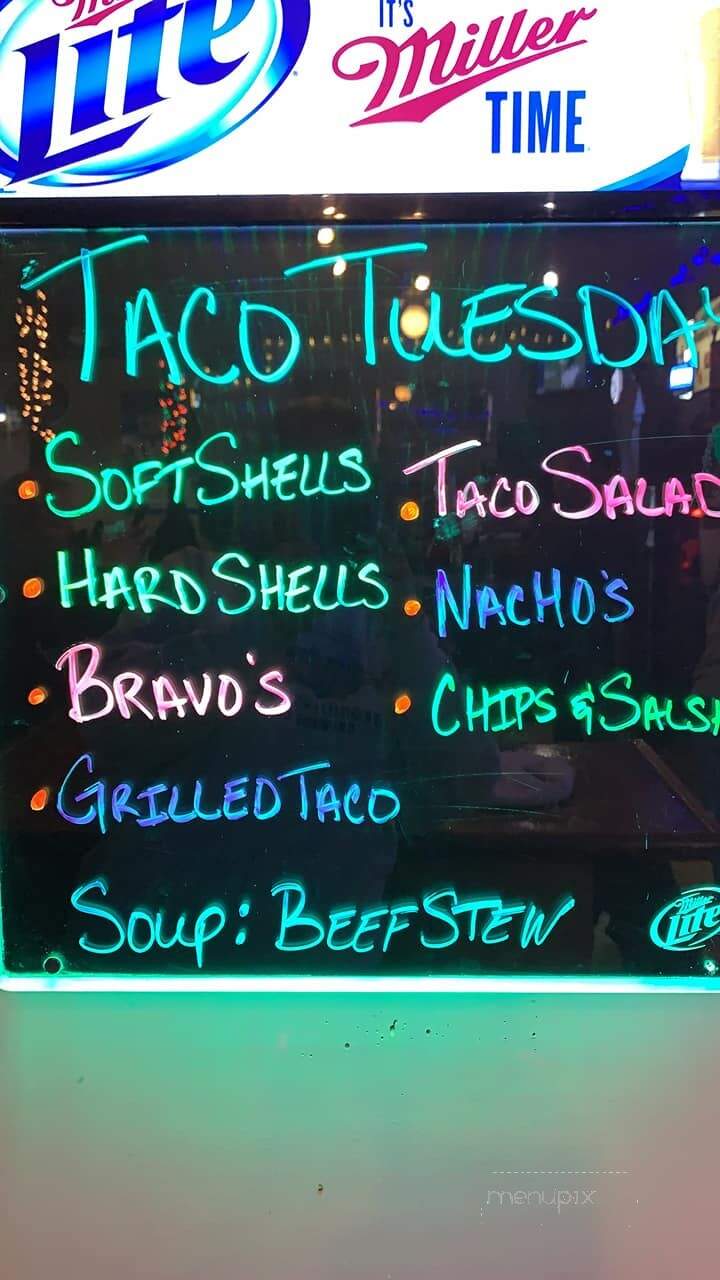 Miller
Lite
IT'S
Miller
TIME
TACO TUESDAY
• SOFT SHELLS
• HARD SHELLS
• BRAVO'S
• GRILLED TACO
• TACO SALAD
• NACHO'S
• CHIPS & SALSA
SOUP: BEEF STEW
Miller
Lite
menupix